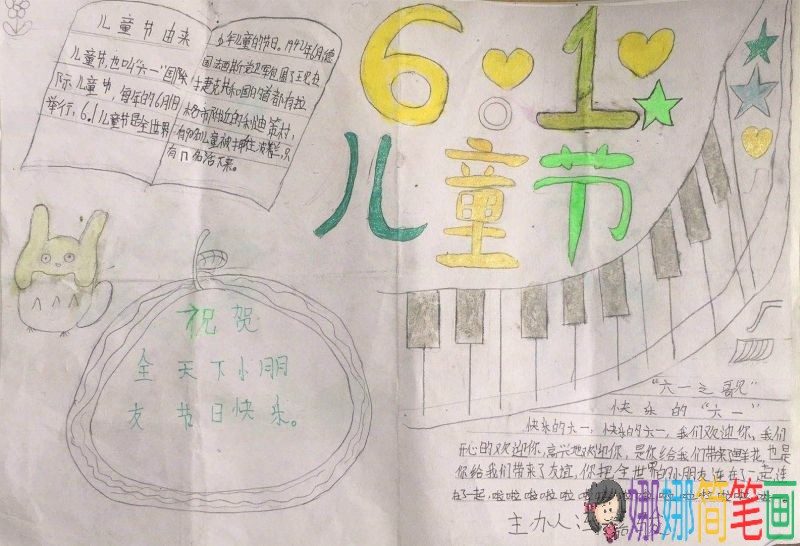 儿童节由来
儿童节,也叫"六一"国际
际儿童节,每年的6月1日
举行,6.1儿童节是全世界
少年儿童的节日。1942年6月德
国法西斯党卫军包围了
捷克共和国的首都布拉
格
有
有 名活下来。
6.1
儿童节
祝贺
全天下小朋
友节日快乐。
"六一之歌"
快乐的"六一"
快乐的六一,快乐的六一,我们欢迎你,我们
开心的欢迎你,高兴地欢迎你,是你给我们带来了鲜花,也是
你给我们带来了友谊,你把全世界的小朋友连在了一起,连
在了一起,啦啦啦啦啦啦
主办人:
娜娜简笔画